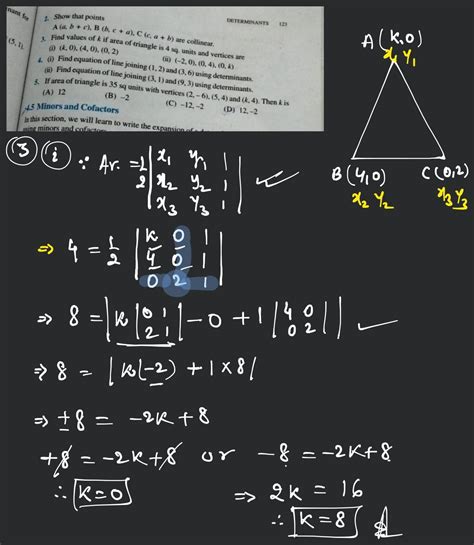 nant for
(5, 1),
DETERMINANTS 123
2. Show that points
A (a, b + c), B (b, c + a), C (c, a + b) are collinear.
3. Find values of k if area of triangle is 4 sq. units and vertices are
(i) (k, 0), (4, 0), (0, 2) (ii) (–2, 0), (0, 4), (0, k)
4. (i) Find equation of line joining (1, 2) and (3, 6) using determinants.
(ii) Find equation of line joining (3, 1) and (9, 3) using determinants.
5. If area of triangle is 35 sq units with vertices (2, – 6), (5, 4) and (k, 4). Then k is
(A) 12 (B) –2 (C) –12, –2 (D) 12, –2
4.5 Minors and Cofactors
In this section, we will learn to write the expansion of
ning minors and cofactors
A (k,0)
x₁ y₁
B (4,0) C (0,2)
x₂ y₂ x₃ y₃
③ ⓘ ∵ Ar. = 1/2 | x₁ y₁ 1 |
| x₂ y₂ 1 |
| x₃ y₃ 1 |
⇒ 4 = 1/2 | k 0 1 |
| 4 0 1 |
| 0 2 1 |
⇒ 8 = | k | 0 1 | - 0 + 1 | 4 0 | |
| 2 1 | | 0 2 |
⇒ 8 = | k(-2) + 1 × 8 |
⇒ ±8 = -2k + 8
+8 = -2k + 8 or -8 = -2k + 8
∴ k = 0 ⇒ 2k = 16
∴ k = 8